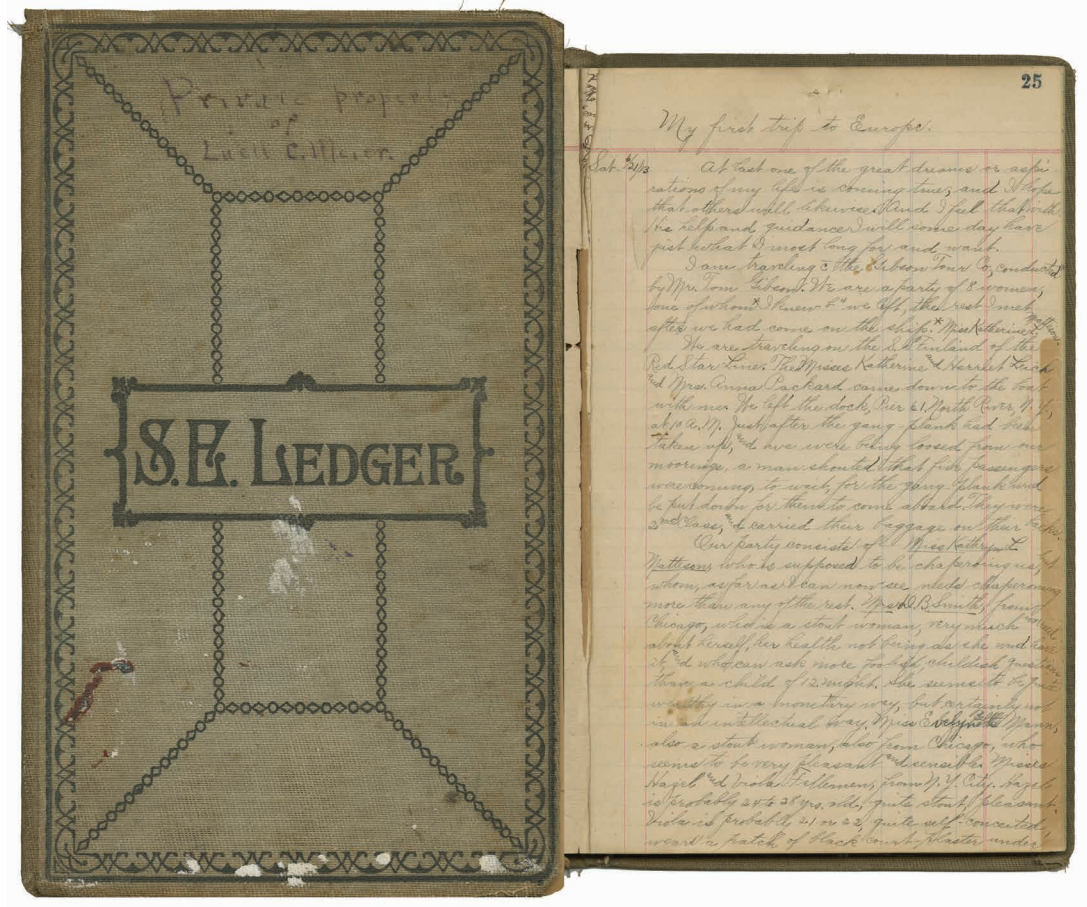 Private property
of
Luell C. Meier.
S.E. LEDGER
25
My first trip to Europe.
Sat. 6/21/13 At last one of the great dreams or aspi-
rations of my life is coming true, and I hope
that others will likewise. And I feel that with
His help and guidance I will some day have
just what I most long for and want.
I am traveling c̄ the Gibson Tour Co, conducted
by Mr. Tom Gibson. We are a party of 8 women,
one of whom * I knew we left, the rest I met
after we had come on the ship. * Miss Katherine L. Mattison.
We are traveling on the S.S. Finland of the
Red Star Line. The Misses Katherine and Harriet Lack
and Mrs. Anna Packard came down to the boat
with me. We left the dock, Pier 61, North River, N.Y.,
at 10 A.M. Just after the gang-plank had been
taken up, and we were being loosed from our
moorings, a man shouted that five passengers
were coming, to wait, for the gang-plank
be put down for them to come aboard. They were
2nd class, and carried their baggage on their backs.
Our party consists of Miss Kathryn L
Mattison, who is supposed to be chaperoning us,
whom, as far as I can now see, needs chaperoning
more than any of the rest. Mrs D. B. Smith, from
Chicago, who is a stout woman, very much
about herself, her health not being as she
it, and who can ask more foolish, childish questions
than a child of 12 might. She seems to be quite
wealthy in a monetary way, but certainly no
in an intellectual way. Miss Mann,
also a stout woman, also from Chicago, who
seems to be very pleasant and sensible. Misses
Hazel and Viola Fillemen, from N.Y. City. Hazel
is probably 24 to 28 yrs. old, quite stout, pleasant.
Viola is probably 21 or 22, quite self-conceited,
wears a patch of black court-plaster under